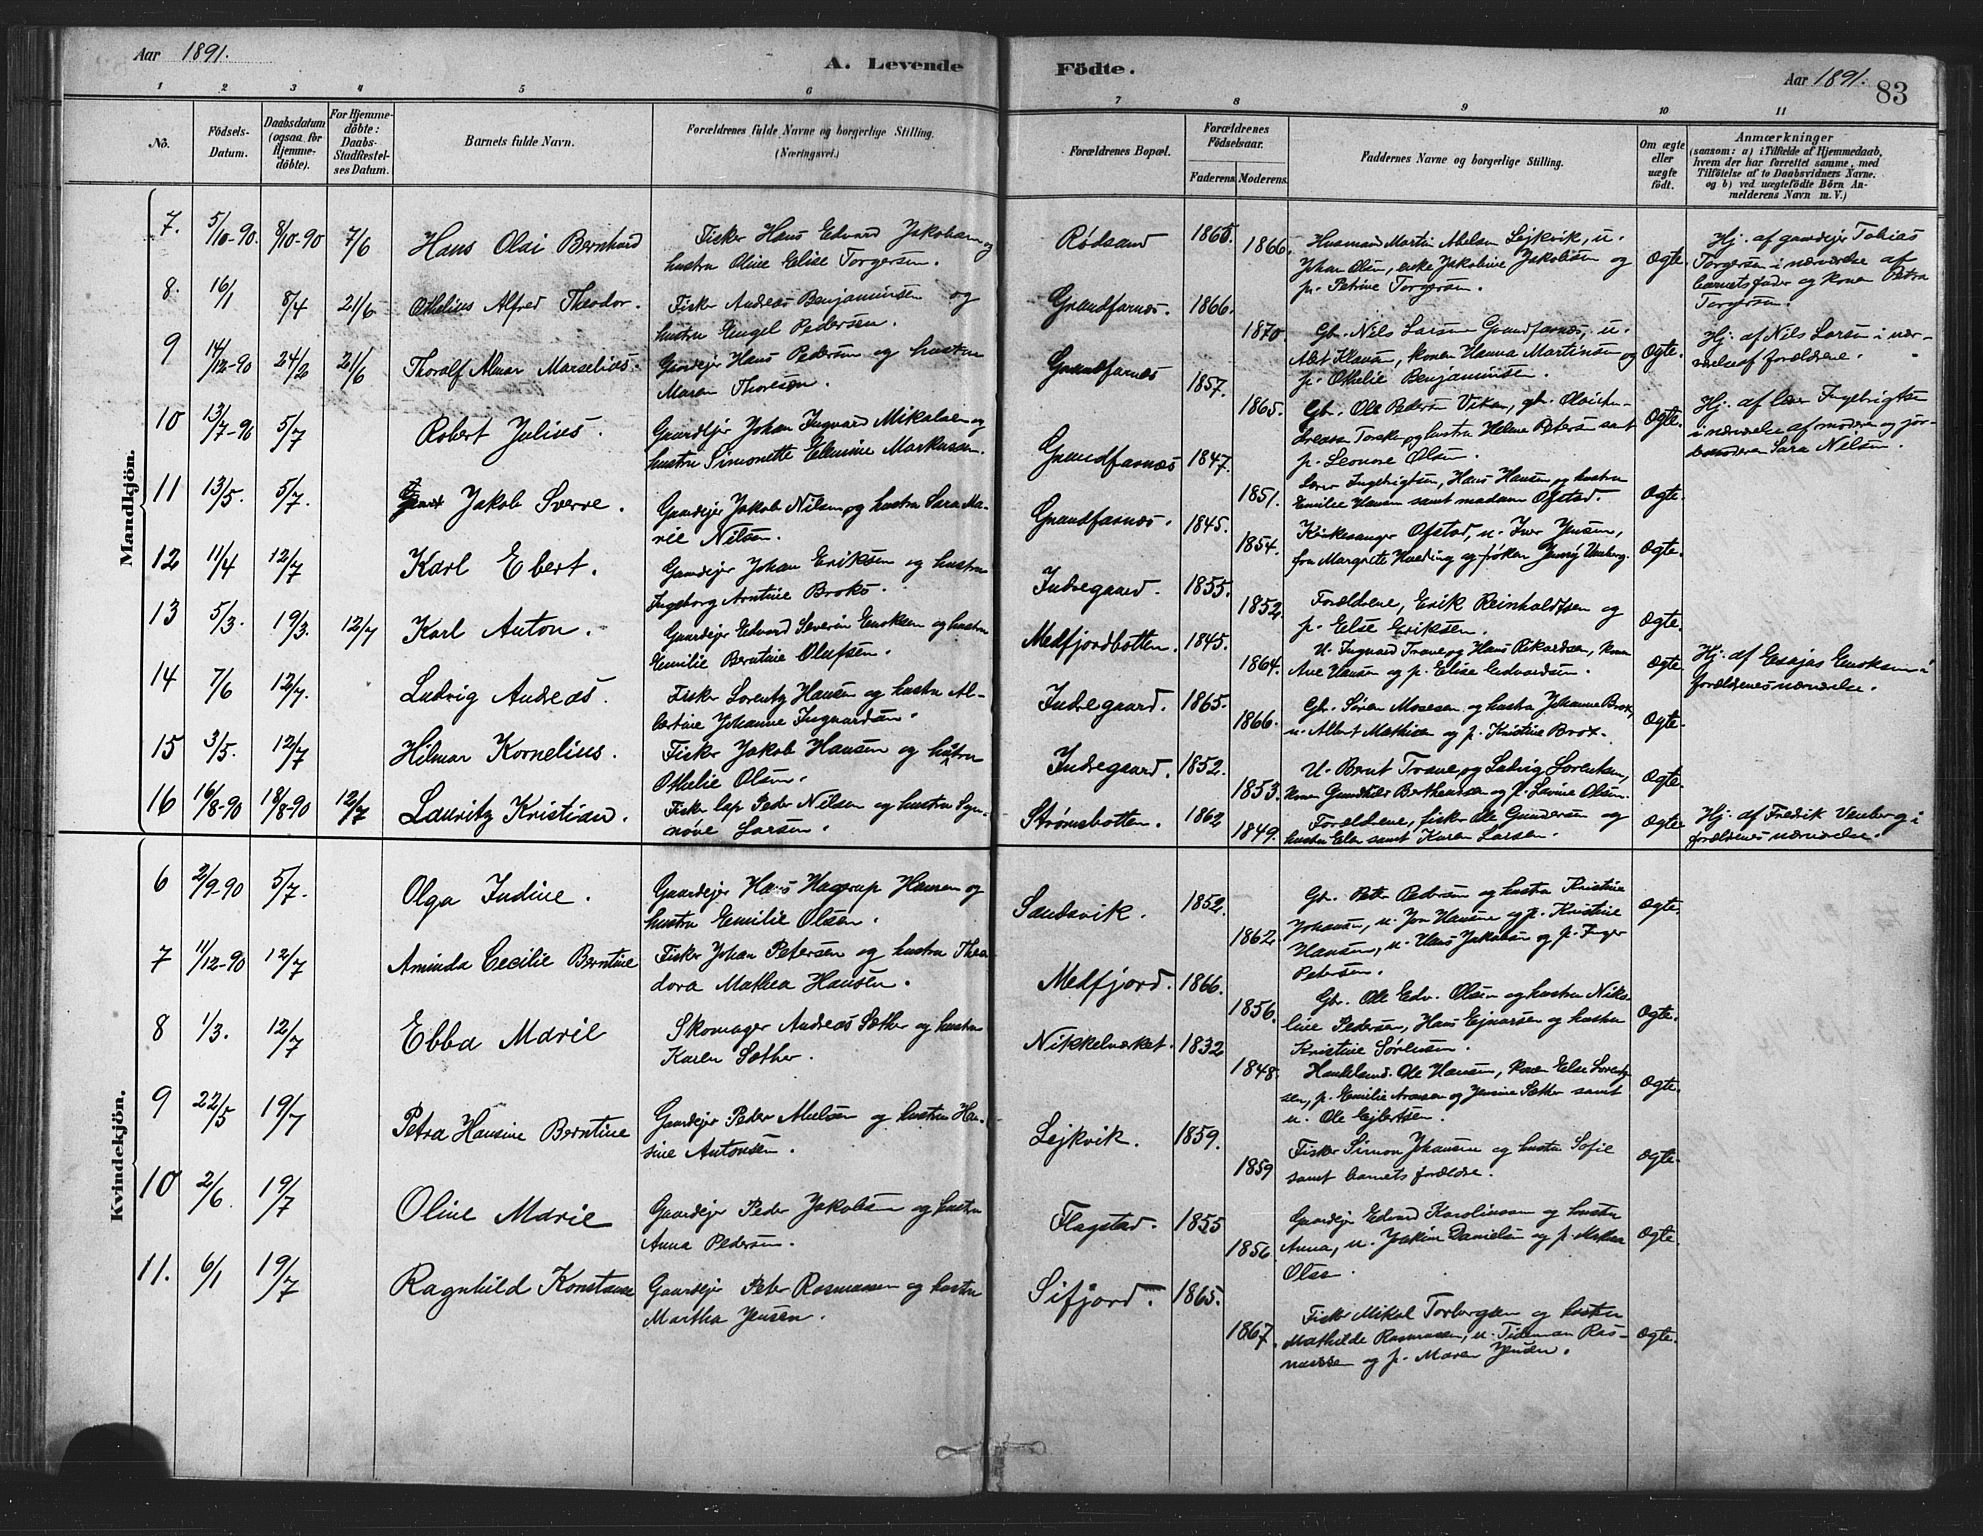 Aar 1891.
A. Levende Födte.
Aar 1891.
83
1 2 3 4 5 6 7 8 9 10 11
No.
Födsels-Datum.
Daabsdatum (ogsaa for Hjemme-döbte).
For Hjemme-döbte: Daabs-Stadfæstel-ses Datum.
Barnets fulde Navn.
Forældrenes fulde Navne og borgerlige Stilling.
(Næringsvei.)
Forældrenes Bopæl.
Forældrenes Födselsaar.
Faderens. Moderens.
Faddernes Navne og borgerlige Stilling.
Om ægte eller uægte födt.
Anmærkninger
(saasom: a) i Tilfælde af Hjemmedaab,
hvem der har forrettet samme, med
Tilföielse af to Daabsvidners Navne.
og b) ved uægtefödte Börn An-
melderens Navn m. V.)
Mandkjön.
7. 5/10-90. 8/10-90 7/6 Hans Olai Bernhard
Fisker Hans Edvard Jakobsen og
hustru Oline Elise Torgersen.
Rødsand 1865 1866.
Husmand Martin Abelsen Lejkvik, u.
Johan Olsen, enke Jakobine Jakobsen og
p. Petrine Torgersen.
Ægte.
Hj. af gaardejer Tobias
Torgersen i nærværelse af
barnets fader og konen Petra
Torgersen.
8. 16/1 8/4 21/6 Othelius Alfred Theodor.
Fisker Andreas Benjaminsen og
hustru Engel Pedersen.
Grundfarnes. 1866. 1870.
Gb. Nils Larsen Grundfarnes, u.
Klausen, konen Hanna Martinsen og
p. Othelie Benjaminsen.
Ægte.
Hj. af Nils Larsen i nær-
værelse af forældrene.
9 14/12-90 24/2 21/6 Thoralf Almar Marselius.
Gaardejer Hans Pedersen og hustru
Maren Thoresen.
Grundfarnes 1857. 1865.
Gb. Ole Pedersen Viken, gb.
Torsken og hustru Helene Petersen samt
p. Leonore Olsen.
Ægte.
Hj. af lærer Ingebrigtsen
i nærværelse af moderen og jor-
demoderen Sara Nilsen.
10 13/7-90 5/7 Robert Julius.
Gaardejer Johan Ingvard Mikalsen og
hustru Simonette Elenine Markussen.
Grundfarnes 1847. 1851.
Lærer Ingebrigtsen, Hans Hansen og hustru
Emilie Hansen samt madam Ofstad.
Ægte.
11 13/5. 5/7. Jakob Sverre.
Gaardejer Jakob Nilsen og hustru Sara Ma-
rie Nilsen.
Grundfarnes. 1845. 1854.
Kirkesanger Ofstad, u. Iver Jensen,
fru Margrete Hveding og frøken Jenny Venberg.
Ægte.
12 11/4 12/7 Karl Ebert.
Gaardejer Johan Eriksen og hustru
Ingeborg Arntine Broks.
Indregaard. 1855. 1852.
Forældrene, Erik Reinholdtsen og
p. Else Eriksen.
Ægte.
13 5/3. 19/3. 12/7 Karl Anton.
Gaardejer Edvard Severin Enoksen og hustru
Emilie Berntine Olufsen.
Medfjordbotten. 1845. 1864.
U. Ingvard Trane og Hans Rikardsen, konen
Ane Hansen og p. Elise Edvardsen.
Ægte.
Hj. af Esajas Enoksen i
forældrenes nærværelse.
14 7/6 12/7. Ludvig Andreas.
Fisker Lorentz Hansen og hustru Al-
bertine Johanne Ingvardsen.
Indregaard. 1865. 1866.
Gb. Søren Mosesen og hustru Johanne Brox,
u. Albert Mathisen og p. Kristine Brox.
Ægte.
15 3/5. 12/7 Hilmar Kornelius.
Fisker Jakob Hansen og hustru
Othelie Olsen.
Indregaard. 1852. 1853.
U. Bernt Trane og Ludvig Lorentsen,
konen Gunhild Bertheussen og p. Lovine Olsen.
Ægte.
16 16/8-90 18/8-90 12/7 Lauritz Kristian.
Fisker lap Peder Nilsen og hustru Syn-
nøve Larsen.
Strømsbotten. 1862 1849.
Forældrene, fisker Ole Gundersen og
hustru Elen samt Karen Larsen.
Ægte
Hj. af Fredrik Venberg i
forældrenes nærværelse.
Kvindekjön.
6 2/9-90 5/7. Olga Indine.
Gaardejer Hans Hagerup Hansen og
hustru Emilie Olsen.
Sandsvik. 1852. 1862.
Gb. Peter Pedersen og hustru Kristine
Johansen, u. Jon Hansen og p. Kristine
Hansen, u. Hans Jakobsen og p. Inger
Petersen.
Ægte.
7 11/12-90 12/7 Aminda Cecilie Berntine
Fisker Johan Petersen og hustru Theo
dora Mathea Hansen.
Medfjord. 1866. 1856.
Gb. Ole Edv. Olsen og hustru Niko-
line Pedersen, Hans Ejnarsen og hustru
Kristine Sørensen.
Ægte.
8 1/3. 12/7 Ebba Marie
Skomager Andreas Sæther og hustru
Karen Sæther.
Nikkelværket. 1832 1848.
Handelsmd. Ole Hansen, konen Else Lorent-
sen, p. Emilie Aronsen og Jensine Sæther samt
u. Ole Ejlertsen.
Ægte.
9 22/5 19/7 Petra Hansine Berntine
Gaardejer Peder Nielsen og hustru Han-
sine Antonsen.
Lejkvik. 1859. 1859
Fisker Simon Johansen og hustru Sofie
samt barnets forældre.
Ægte.
10 2/6. 19/7 Oline Marie
Gaardejer Peder Jakobsen og hustru
Anna Pedersen.
Flagstad. 1855 1856.
Gaardejer Edvard Karoliussen og hustru
Anna, u. Joakim Danielsen og p.
Olsen.
Ægte.
11. 6/1 19/7 Ragnhild Konstanse
Gaardejer Peter Rasmussen og hustru
Martha Jensen.
Sifjord. 1865. 1867.
Fisker Mikal Torbergsen og hustru
Mathilde Rasmussen, u. Tideman Ras-
mussen og p. Maren Jensen.
Ægte.